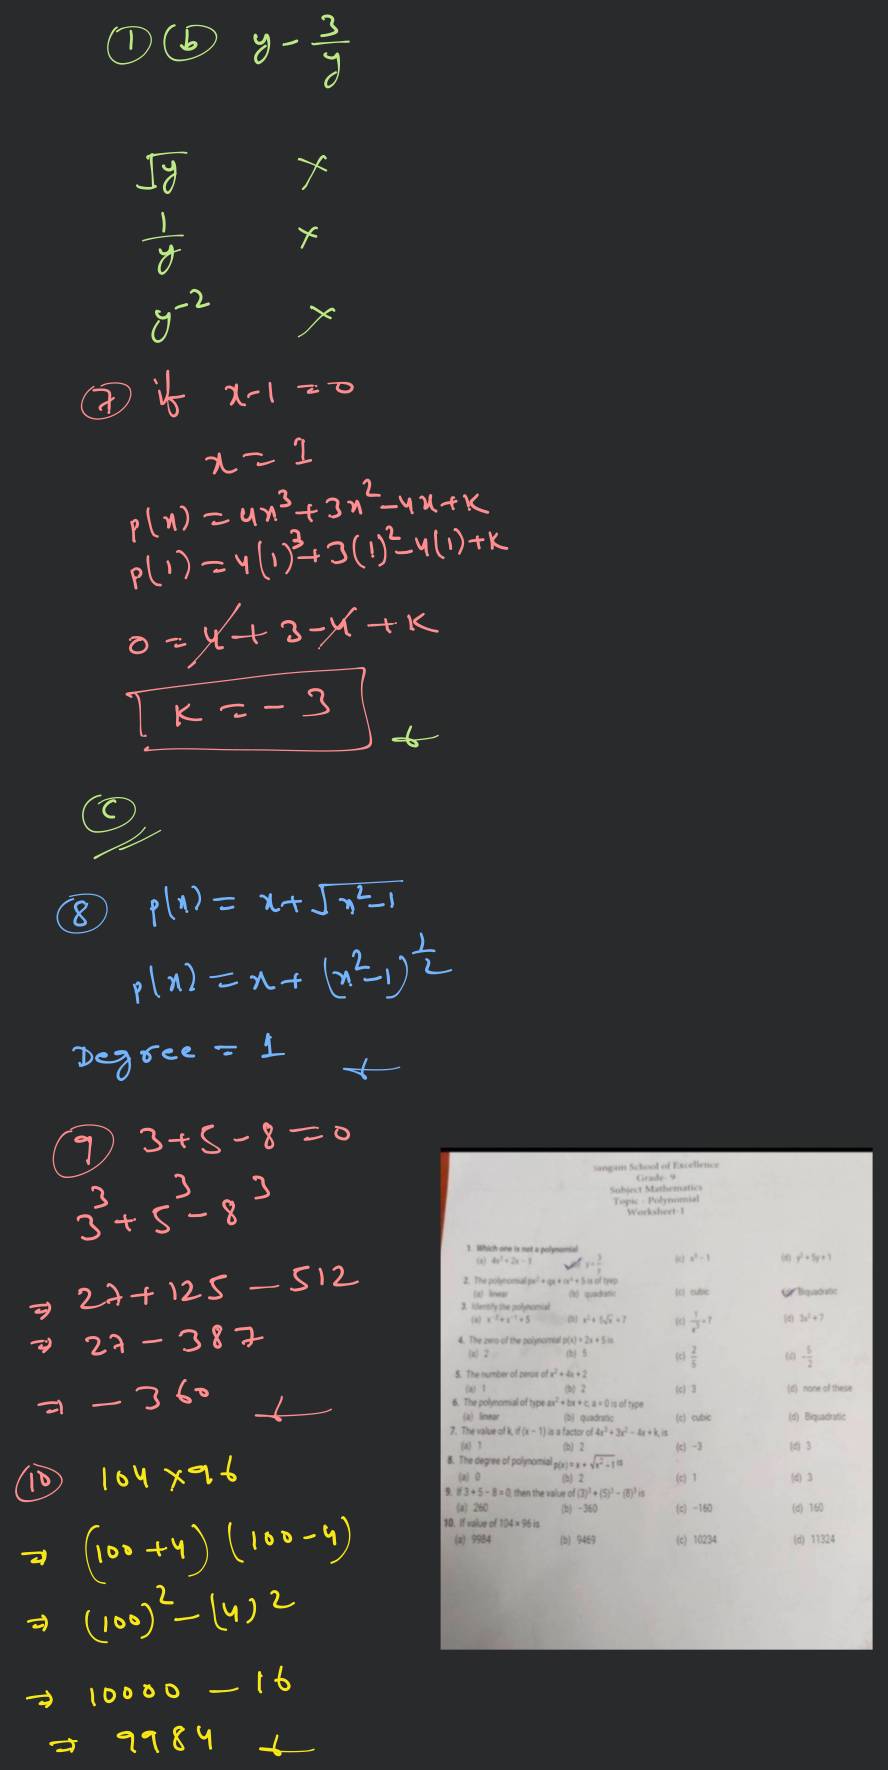 ① ⓑ y - 3/y
√y ×
1/y ×
y⁻² ×
⑦ if x-1=0
x=1
p(x)=4x³+3x²-4x+K
p(1)=4(1)³+3(1)²-4(1)+K
0=4+3-4+K
K=-3
ⓒ
⑧ p(x)= x+√x²-1
p(x)=x+(x²-1)^1/2
Degree = 1
⑨ 3+5-8=0
3³+5³-8³
⇒ 27+125-512
⇒ 27-387
⇒ -360
⑩ 104×96
⇒ (100+4)(100-4)
⇒ (100)²-(4)²
⇒ 10000-16
⇒ 9984
Sangam School of Excellence
Grade- 9
Subject Mathematics
Topic - Polynomial
Worksheet-1
1. Which one is not a polynomial
(a) 4x²+2x-1 y+3/y (c) x³-1 (d) y²+5y+1
2. The polynomial px²+qx+rx⁴+5 is of type
(a) linear (b) quadratic (c) cubic Biquadratic
3. Identify the polynomial
(a) x⁻²+x⁻¹+5 (b) x²+5√x+7 (c) 1/x³+7 (d) 3x²+7
4. The zero of the polynomial p(x)=2x+5 is
(a) 2 (b) 5 (c) 2/5 (d) -5/2
5. The number of zeros of x²+4x+2
(a) 1 (b) 2 (c) 3 (d) none of these
6. The polynomial of type ax²+bx+c, a=0 is of type
(a) linear (b) quadratic (c) cubic (d) Biquadratic
7. The value of k, if (x-1) is a factor of 4x³+3x²-4x+k, is
(a) 1 (b) 2 (c) -3 (d) 3
8. The degree of polynomial p(x)=x+√x²-1 is
(a) 0 (b) 2 (c) 1 (d) 3
9. If 3+5-8=0, then the value of (3)³+(5)³-(8)³ is
(a) 260 (b) -360 (c) -160 (d) 160
10. If value of 104×96 is
(a) 9984 (b) 9469 (c) 10234 (d) 11324